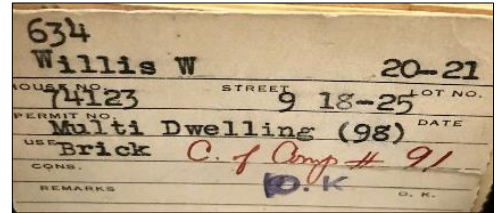 634
Willis W 20-21
HOUSE NO. STREET LOT NO.
74123 9 18-25
PERMIT NO. DATE
Multi Dwelling (98)
USE Brick C. of Comp # 91
CONS. O.K
REMARKS O. K.